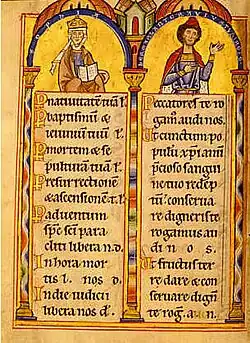 P nativitatē tuā l'.
P baptismū &
ieiuniū tuū l'.
P mortem & se
pulturā tuā l'.
P resurrectionē
& ascensionē t. l'.
P adventum
spc sci para
cliti libera n. d.
In hora mor
tis l. nos d.
In die iudicii
libera nos d'.
Peccatores te ro
gam' audi nos.
Ut cunctum po
pulū xp̄ianū
p̄cioso sangui
ne tuo redēp
tū conserva
re digneris te
rogamus au
di nos.
Ut fructus ter
re dare & con
servare dign̄
te rog. a. n.